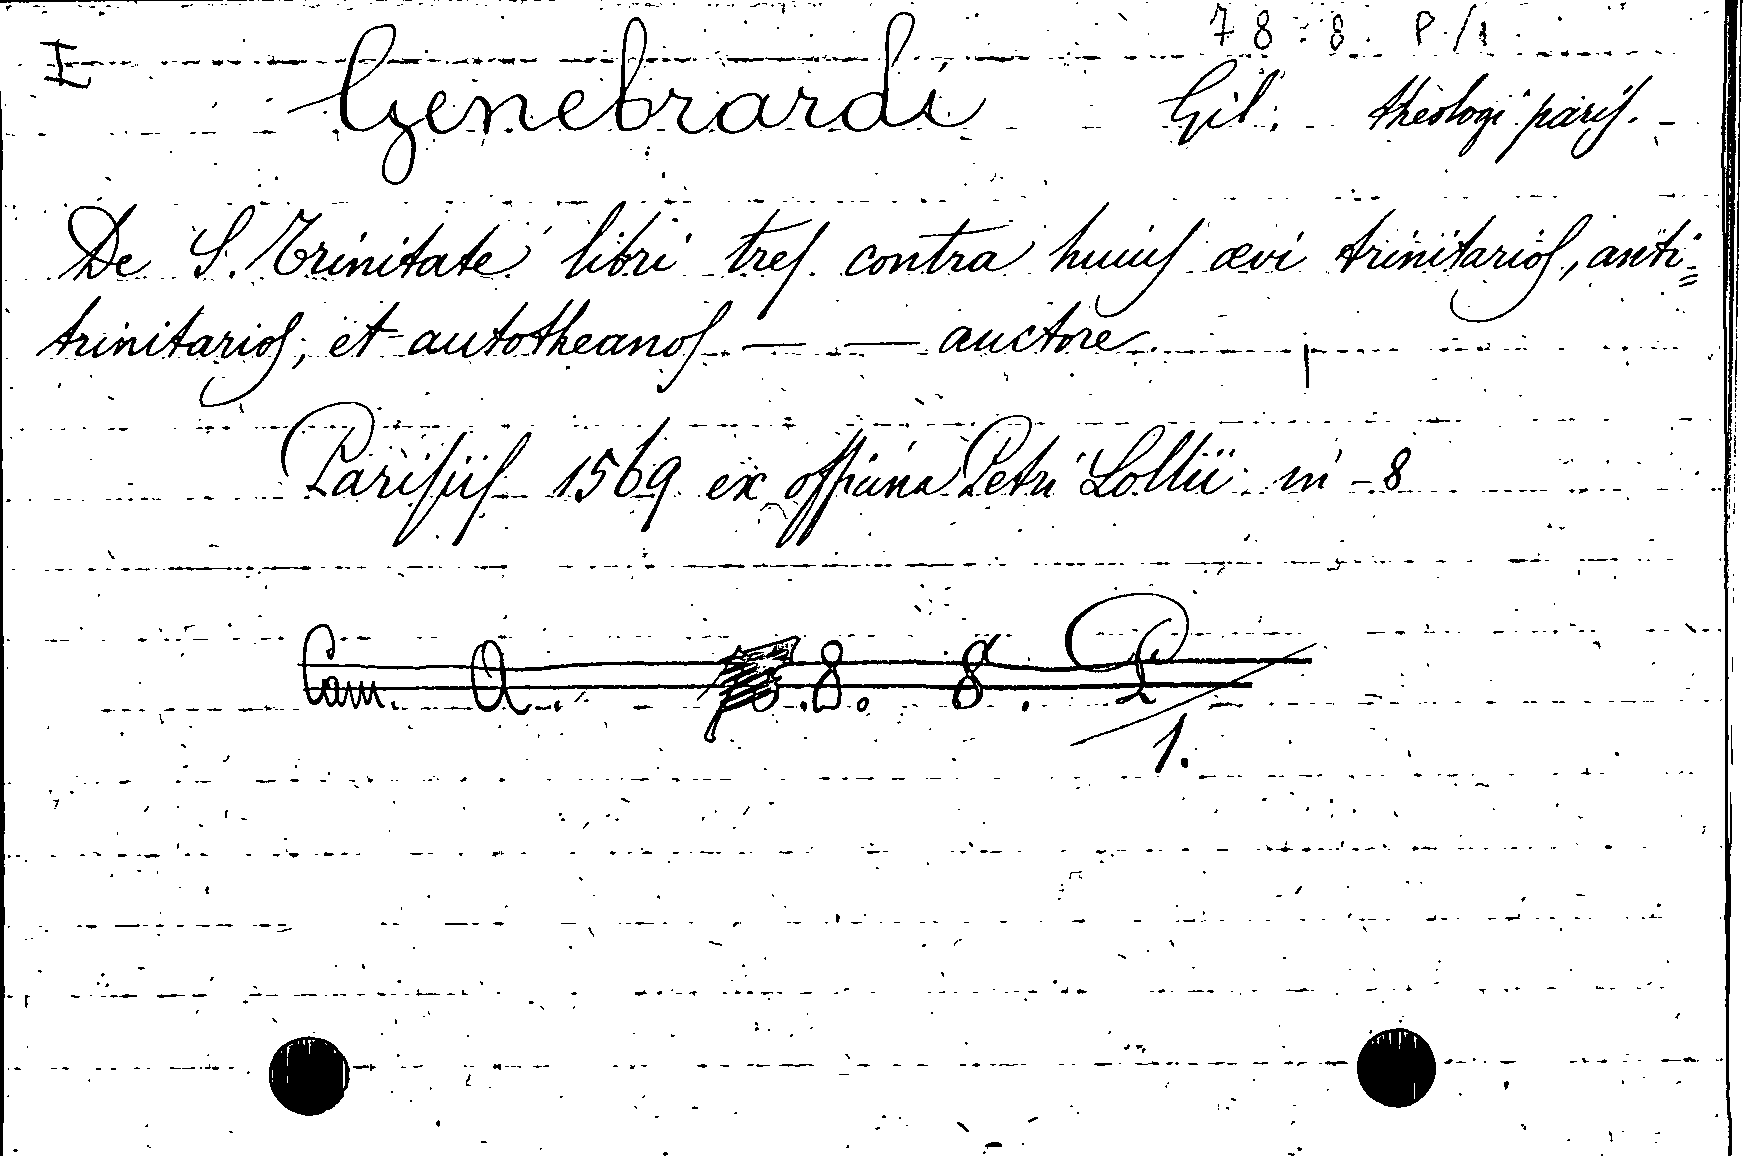 I 78.8. P/1
Genebrardi Gil. theologi paris.
De S. Trinitate libri tres contra huius ævi trinitarios, anti=
trinitarios, et autotheanos — — auctore
Parisiis 1569 ex officina Petri Lollii in-8
Cam. A. 8. 8. P/1.